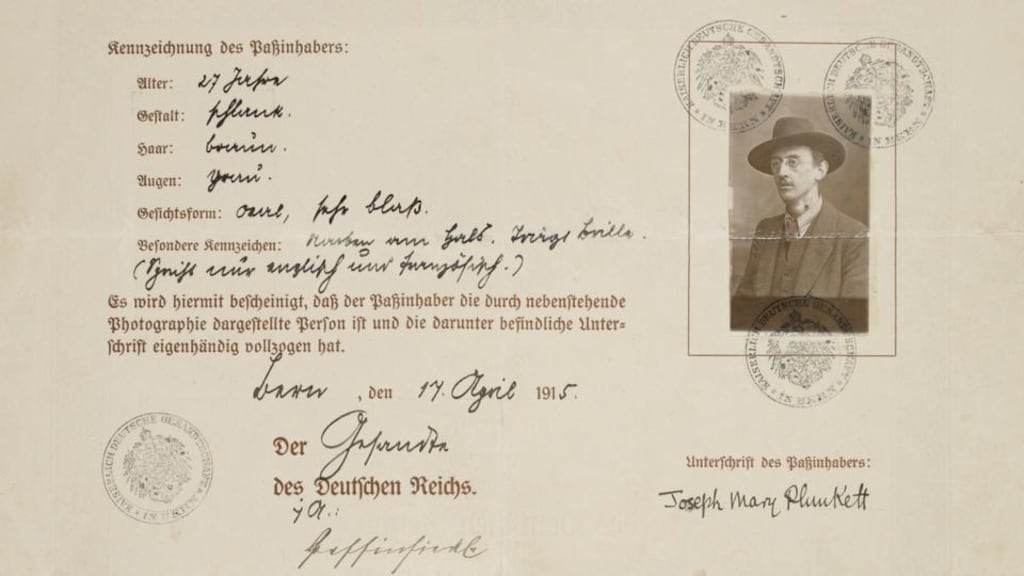 Kennzeichnung des Paßinhabers:
Alter: 27 Jahre
Gestalt: schlank.
Haar: braun.
Augen: grau.
Gesichtsform: oval, sehr blaß.
Besondere Kennzeichen: Narben am Hals. Trägt Brille.
(Spricht nur englisch und französisch.)
Es wird hiermit bescheinigt, daß der Paßinhaber die durch nebenstehende
Photographie dargestellte Person ist und die darunter befindliche Unter=
schrift eigenhändig vollzogen hat.
Bern, den 17. April 1915.
Der Gesandte
des Deutschen Reichs.
KAISERLICH DEUTSCHE GESANDTSCHAFT * IN BERN *
KAISERLICH DEUTSCHE GESANDTSCHAFT * IN BERN *
KAISERLICH DEUTSCHE GESANDTSCHAFT * IN BERN *
KAISERLICH DEUTSCHE GESANDTSCHAFT * IN BERN *
Unterschrift des Paßinhabers:
Joseph Mary Plunkett